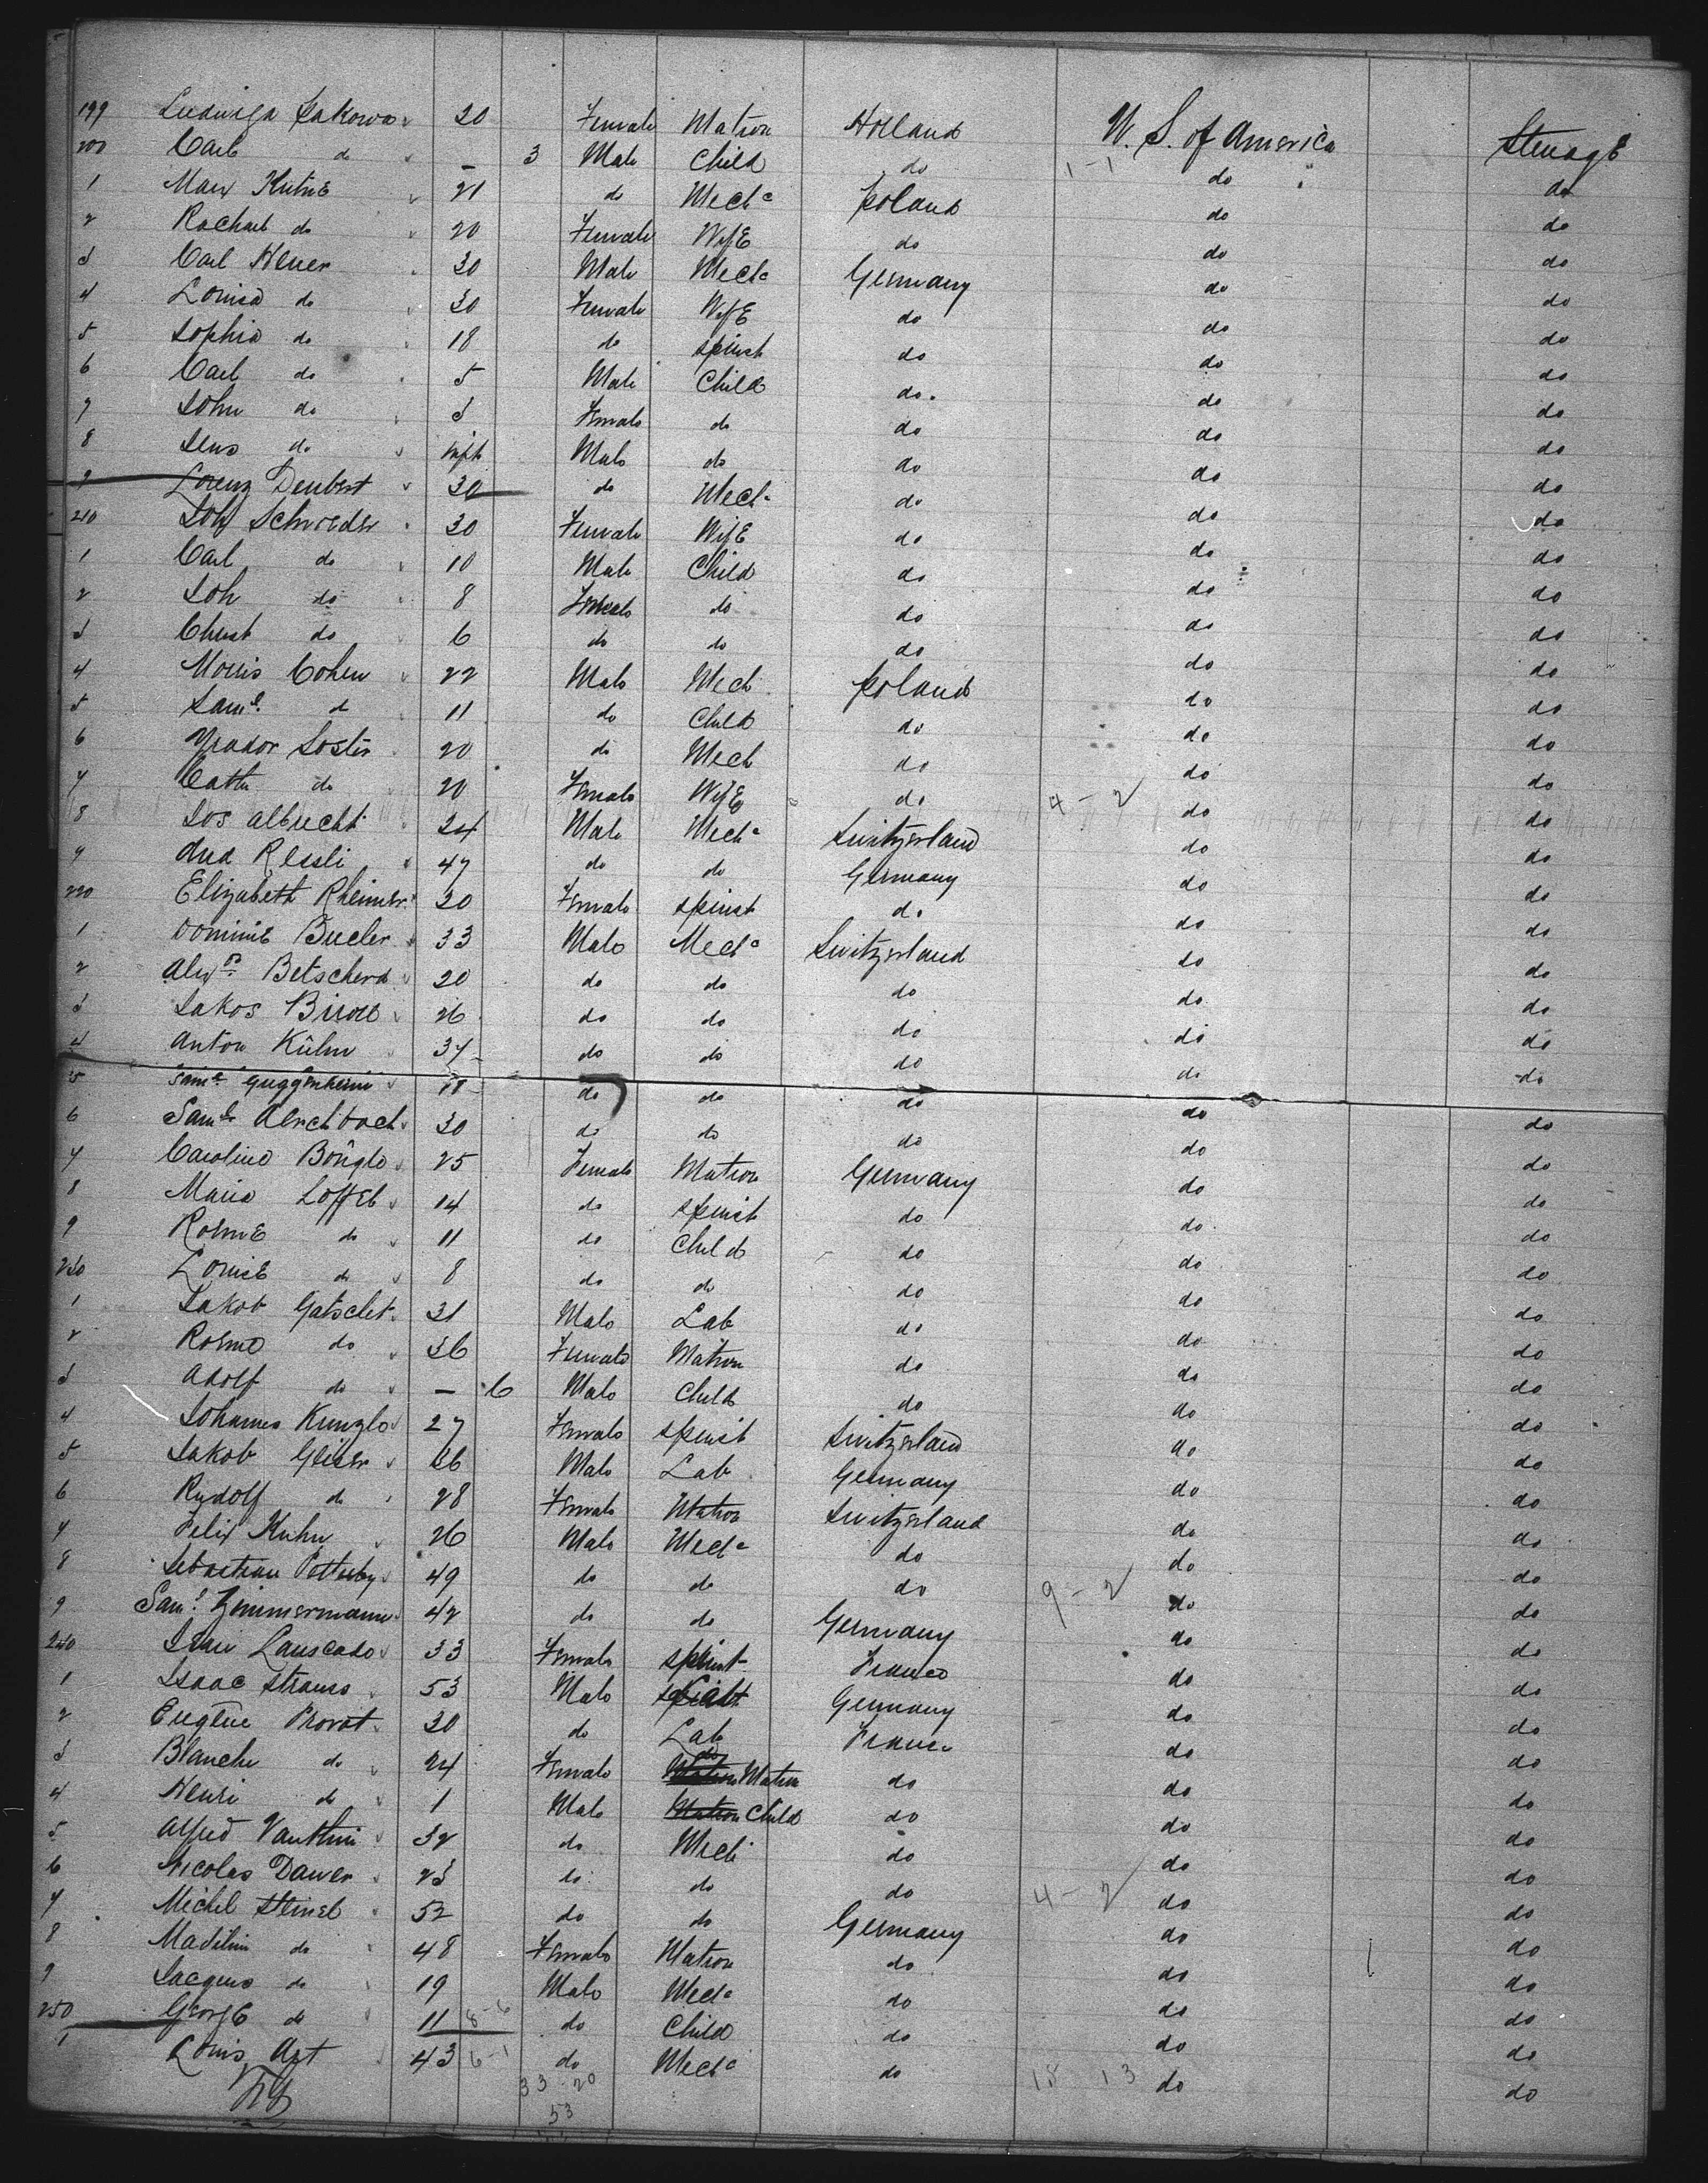 199 Ludwiga Jakowa 20 Female Matron Holland U. S. of America Steerage
200 Carl do – 3 Male Child do do do
1 Max Kutne 21 do Mech Poland do do
2 Rachael do 20 Female Wife do do do
3 Carl Heuer 30 Male Mech Germany do do
4 Louisa do 30 Female Wife do do do
5 Sophia do 18 do Spinst do do do
6 Carl do 5 Male Child do. do do
7 John do 3 Female do do do do
8 do Inft Male do do do do
9 Lorenz Deubert 30 do Mech do do do
210 Joh Schroeder 30 Female Wife do do do
1 Carl do 10 Male Child do do do
2 Joh do 8 Female do do do do
3 Christ do 6 do do do do do
4 Morris Cohen 22 Male Mech Poland do do
5 Saml. do 11 do Child do do do
6 20 do Mech do do do
7 Cath do 20 Female Wife do 4 - 2 do do
8 Jos Albrecht 24 Male Mech Switzerland do do
9 And Ressli 47 do do Germany do do
220 Elizabeth Rheimer 20 Female Spinst do do do
1 Dominie Bucler 33 Male Mech Switzerland do do
2 Alexr Betscherd 20 do do do do do
3 Jakos 26 do do do do do
4 Anton Kühn 37 do do do do do
5 Saml Guggenheim 18 do do do do do
6 Saml 30 do do do do do
7 Caroline Böngle 25 Female Matron Germany do do
8 Maria Loffel 14 do Spinst do do do
9 Rosine do 11 do Child do do do
230 Louise do 8 do do do do do
1 Jakob Gatschet 31 Male Lab do do do
2 Rosine do 36 Female Matron do do do
3 Adolf do – 6 Male Child do do do
4 Johannes Kunzle 27 Female Spinst Switzerland do do
5 Jakob Geiser 36 Male Lab Germany do do
6 Rudolf do 28 Female Matron Switzerland do do
7 Felix Kuhn 26 Male Mech do do do
8 Sebastian 49 do do do 9 - 2 do do
9 Saml. Zimmermann 42 do do Germany do do
240 33 Female Spinst France do do
1 Isaac Strauss 53 Male Germany do do
2 Eugene Provot 30 do Lab France do do
3 Blanche do 24 Female Matron do do do
4 Henri do 1 Male Matron Child do do do
5 Alfred Vauthin 32 do Mech do do do
6 Nicolas Dauer 23 do do do 4 - 2 do do
7 Michel Steinel 52 do do Germany do do
8 Madelin do 48 Female Matron do do do
9 Jacques do 19 Male Mech do do do
250 George do 11 8-6 do Child do do do
1 Louis Art 43 6-1 do Mech do 18 13 do do
33 20
53